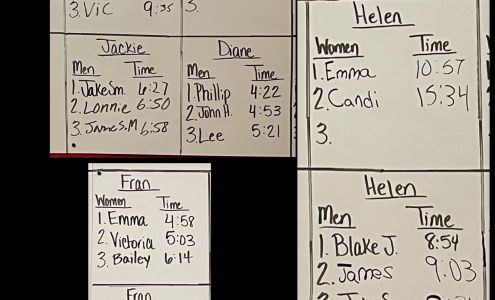 3. Vic 9:35
3.
Jackie
Men Time
1. Jake Sm. 6:27
2. Lonnie 6:50
3. James M 6:58
Diane
Men Time
1. Phillip 4:22
2. John H. 4:53
3. Lee 5:21
Fran
Women Time
1. Emma 4:58
2. Victoria 5:03
3. Bailey 6:14
Fran
Helen
Women Time
1. Emma 10:57
2. Candi 15:34
3.
Helen
Men Time
1. Blake J. 8:54
2. James 9:03